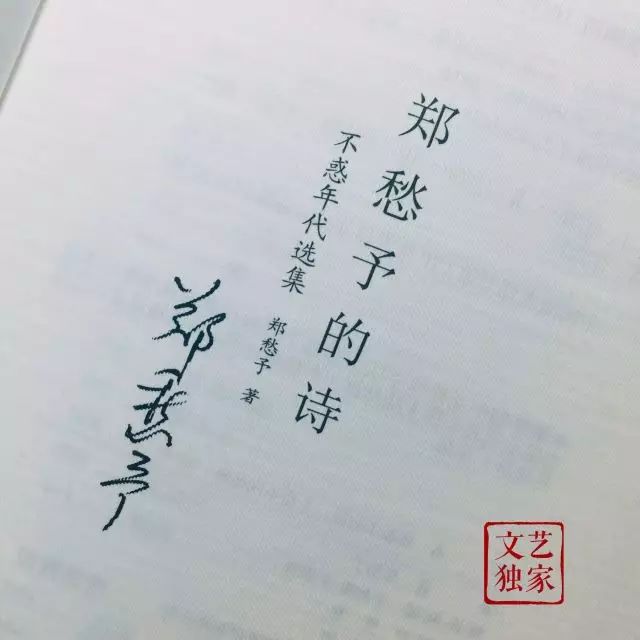 郑愁予的诗
不惑年代选集 郑愁予 著
郑愁予
文艺
独家